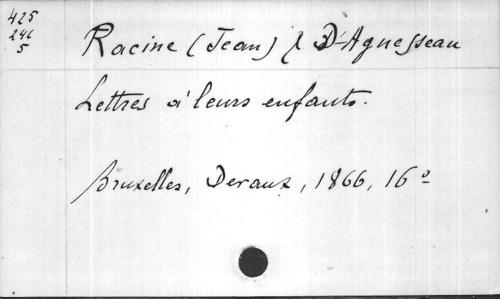 425
246
5
Racine (Jean) & D'Aguesseau
Lettres à leurs enfants.
Bruxelles, Devaux, 1866, 16°